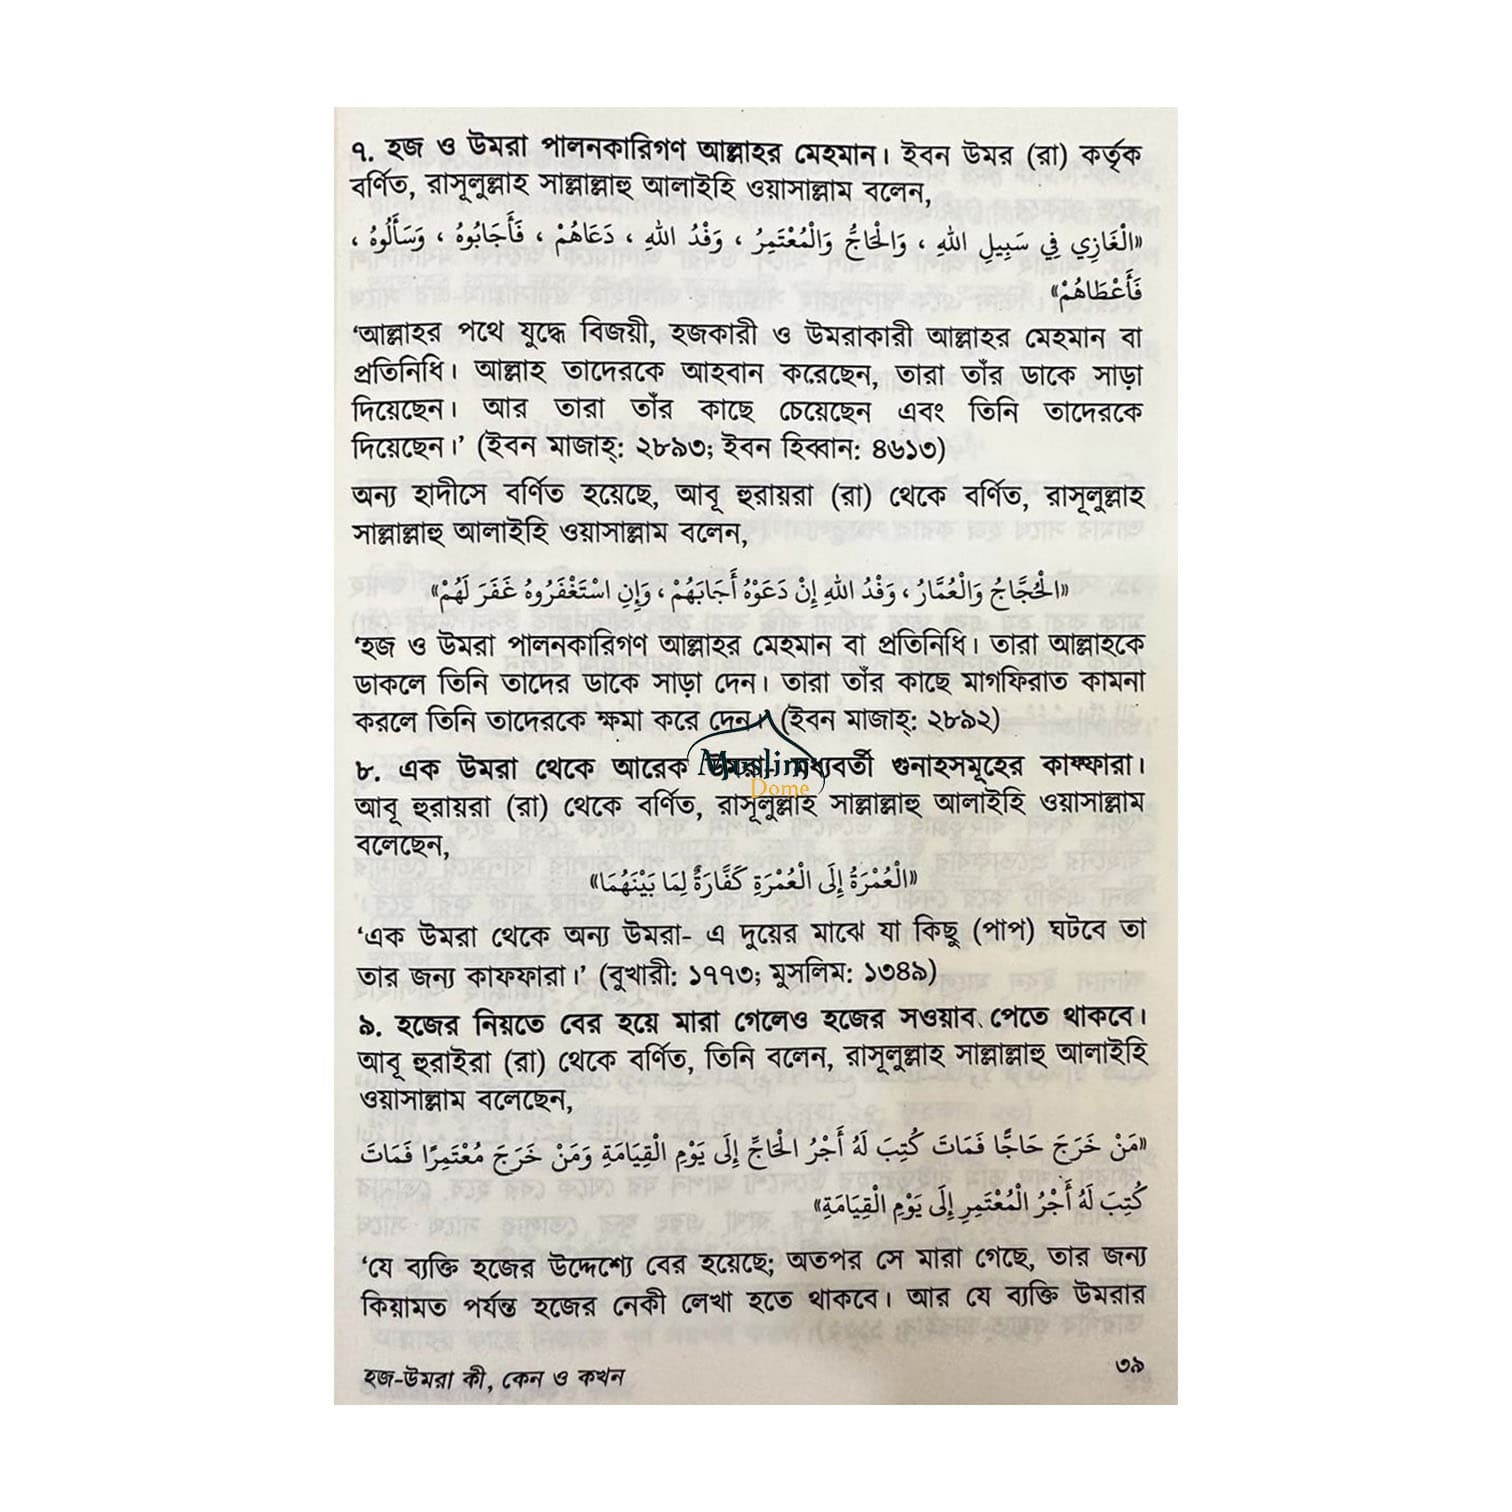 ৭. হজ ও উমরা পালনকারিগণ আল্লাহর মেহমান। ইবন উমর (রা) কর্তৃক
বর্ণিত, রাসূলুল্লাহ সাল্লাল্লাহু আলাইহি ওয়াসাল্লাম বলেন,
«الْغَازِي فِي سَبِيلِ اللهِ ، وَالْحَاجُّ وَالْمُعْتَمِرُ ، وَفْدُ اللهِ ، دَعَاهُمْ ، فَأَجَابُوهُ ، وَسَأَلُوهُ ،
فَأَعْطَاهُمْ»
‘আল্লাহর পথে যুদ্ধে বিজয়ী, হজকারী ও উমরাকারী আল্লাহর মেহমান বা
প্রতিনিধি। আল্লাহ তাদেরকে আহবান করেছেন, তারা তাঁর ডাকে সাড়া
দিয়েছেন। আর তারা তাঁর কাছে চেয়েছেন এবং তিনি তাদেরকে
দিয়েছেন।’ (ইবন মাজাহ্: ২৮৯৩; ইবন হিব্বান: ৪৬১৩)
অন্য হাদীসে বর্ণিত হয়েছে, আবূ হুরায়রা (রা) থেকে বর্ণিত, রাসূলুল্লাহ
সাল্লাল্লাহু আলাইহি ওয়াসাল্লাম বলেন,
«الْحُجَّاجُ وَالْعُمَّارُ ، وَفْدُ اللهِ إِنْ دَعَوْهُ أَجَابَهُمْ ، وَإِنِ اسْتَغْفَرُوهُ غَفَرَ لَهُمْ»
‘হজ ও উমরা পালনকারিগণ আল্লাহর মেহমান বা প্রতিনিধি। তারা আল্লাহকে
ডাকলে তিনি তাদের ডাকে সাড়া দেন। তারা তাঁর কাছে মাগফিরাত কামনা
করলে তিনি তাদেরকে ক্ষমা করে দেন।’ (ইবন মাজাহ্: ২৮৯২)
Muslim
Dome
৮. এক উমরা থেকে আরেক উমরা- মধ্যবর্তী গুনাহসমূহের কাফ্ফারা।
আবূ হুরায়রা (রা) থেকে বর্ণিত, রাসূলুল্লাহ সাল্লাল্লাহু আলাইহি ওয়াসাল্লাম
বলেছেন,
«الْعُمْرَةُ إِلَى الْعُمْرَةِ كَفَّارَةٌ لِمَا بَيْنَهُمَا»
‘এক উমরা থেকে অন্য উমরা- এ দুয়ের মাঝে যা কিছু (পাপ) ঘটবে তা
তার জন্য কাফফারা।’ (বুখারী: ১৭৭৩; মুসলিম: ১৩৪৯)
৯. হজের নিয়তে বের হয়ে মারা গেলেও হজের সওয়াব পেতে থাকবে।
আবূ হুরাইরা (রা) থেকে বর্ণিত, তিনি বলেন, রাসূলুল্লাহ সাল্লাল্লাহু আলাইহি
ওয়াসাল্লাম বলেছেন,
«مَنْ خَرَجَ حَاجًّا فَمَاتَ كُتِبَ لَهُ أَجْرُ الْحَاجِّ إِلَى يَوْمِ الْقِيَامَةِ وَمَنْ خَرَجَ مُعْتَمِرًا فَمَاتَ
كُتِبَ لَهُ أَجْرُ الْمُعْتَمِرِ إِلَى يَوْمِ الْقِيَامَةِ»
‘যে ব্যক্তি হজের উদ্দেশ্যে বের হয়েছে; অতপর সে মারা গেছে, তার জন্য
কিয়ামত পর্যন্ত হজের নেকী লেখা হতে থাকবে। আর যে ব্যক্তি উমরার
হজ-উমরা কী, কেন ও কখন
৩৯